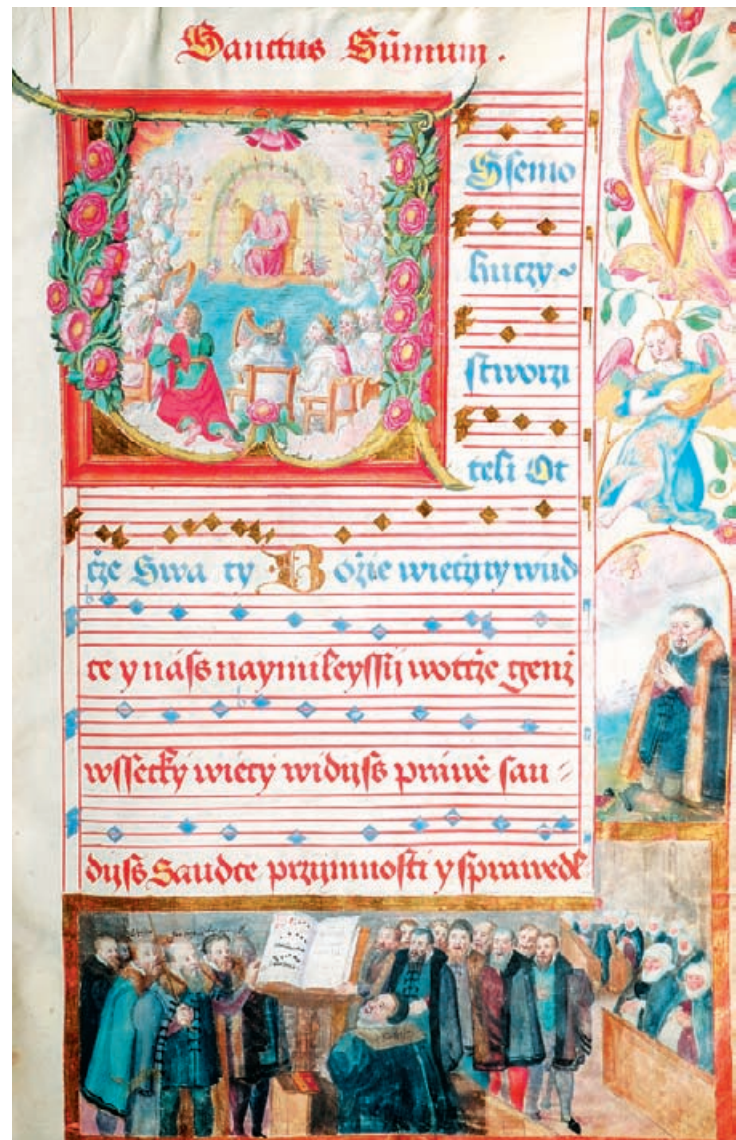 Sanctus Sūmum.
Ssemo
huczy~
stworzi
teli Ot
cze Swa ty Bozie wieczny wud
ce y náss naymileyssij wottcze genž
wssecky wiecy widijss práwě sau =
dijss Saudce przijmnosti y sprawedl